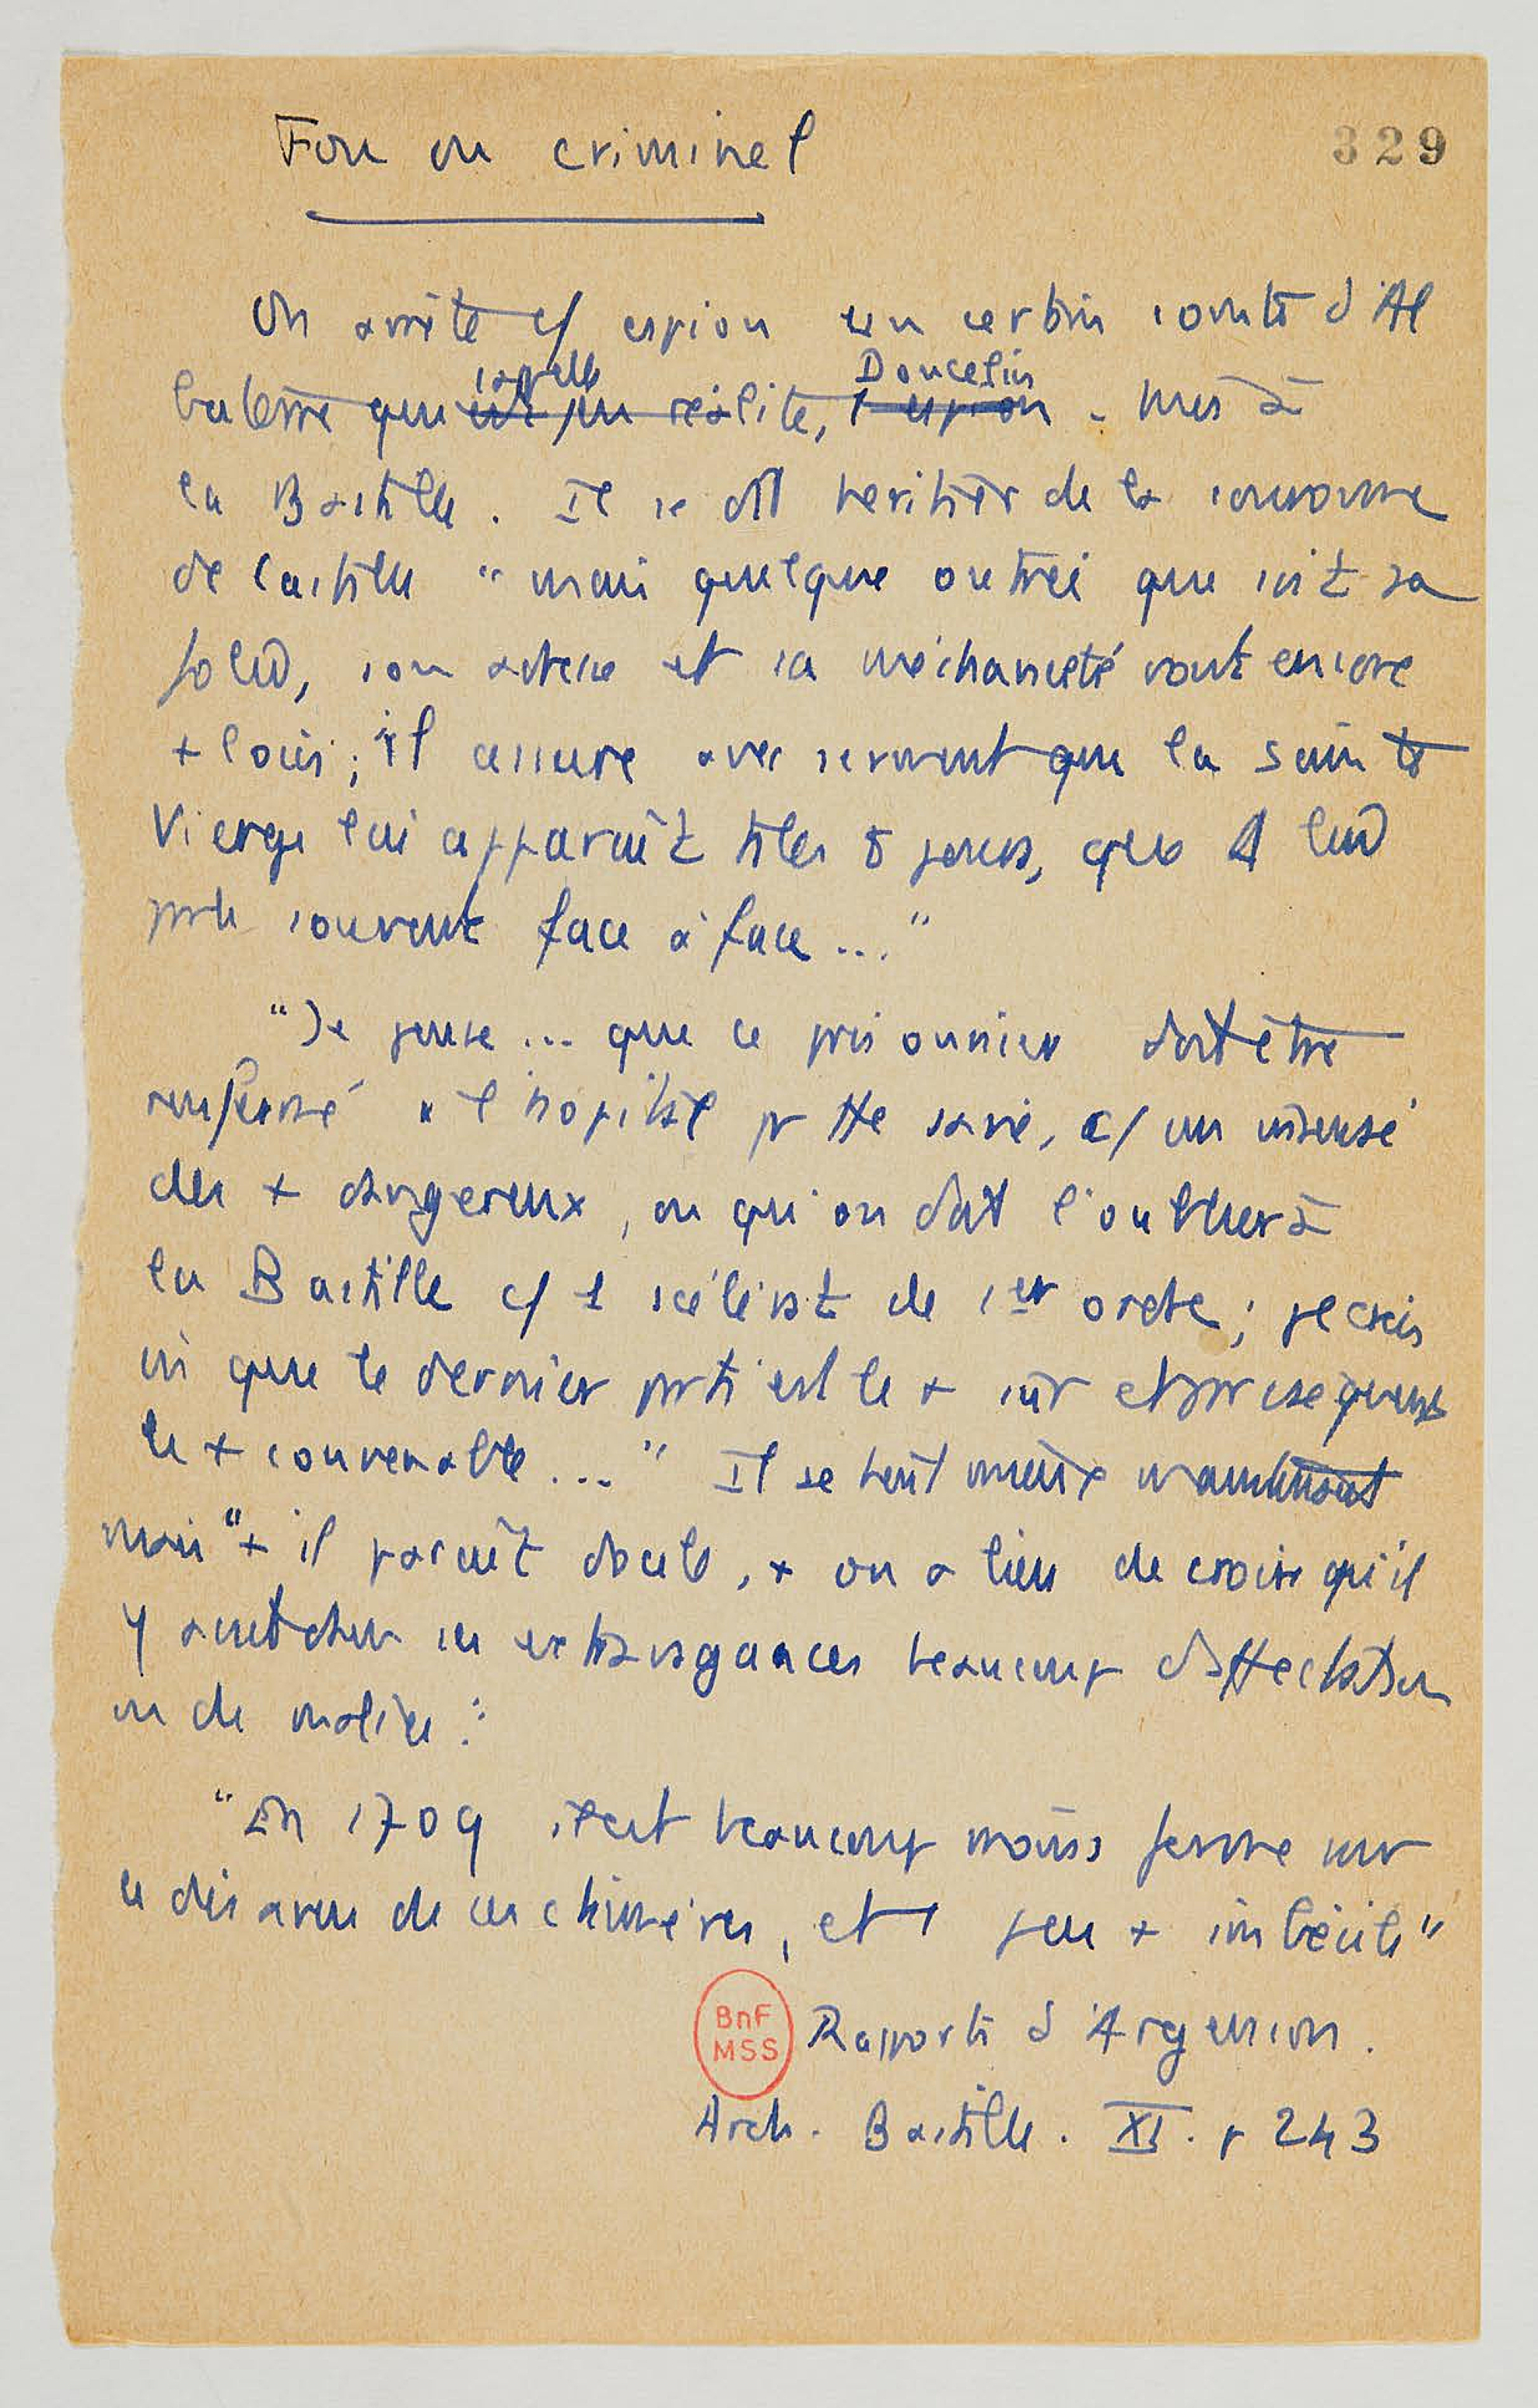 Fou ou criminel
329
On arrête c/ espion un certain comte d'Al
buterre qui s'appelle en réalité, Doucelin. Mis à
la Bastille. Il se dit héritier de la couronne
de Castille "mais quelque outrée que soit sa
folie, son adresse et sa méchanceté vont encore
+ loin ; il assure avec serment que la Sainte
Vierge lui apparaît ts les 8 jours, que Dieu lui
parle souvent face à face..."
"Je pense... que ce prisonnier doit être
renfermé à l'hôpital pr tte sa vie, c/ un insensé
des + dangereux, ou qu'on doit l'oublier à
la Bastille c/ 1 scélérat de 1er ordre ; je crois
que le dernier parti est le + sûr et par conséquent
le + convenable..." Il se tient mieux maintenant
mais "+ il paraît docile, + on a lieu de croire qu'il
y avait dans ses extravagances beaucoup d'affectation
ou de malice."
"En 1709 il est beaucoup moins ferme sur
le désaveu de ses chimères, et 1 peu + imbécile"
BnF
MSS
Rapports d'Argenson.
Arch. Bastille. XI. p 243